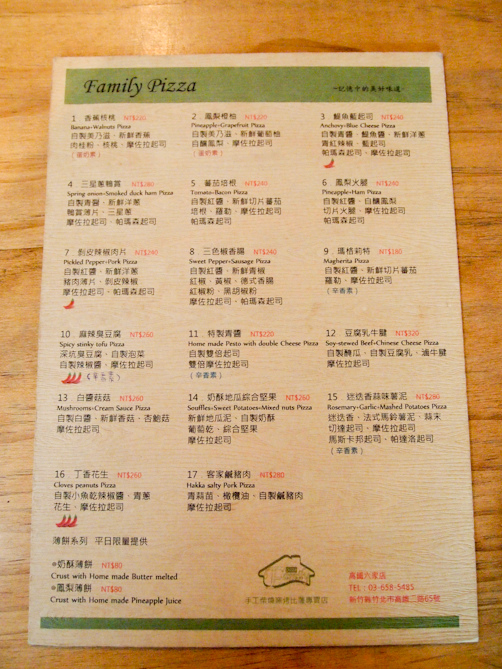 Family Pizza
~記憶中的美妙味道~
1 香蕉核桃 NT$220
Banana+Walnuts Pizza
自製美乃滋、新鮮香蕉
肉桂粉、核桃、摩佐拉起司
(蛋奶素)
2 鳳梨橙柚 NT$220
Pineapple+Grapefruit Pizza
自製美乃滋、新鮮葡萄柚
自釀鳳梨、摩佐拉起司
(蛋奶素)
3 鯷魚藍起司 NT$240
Anchory+Blue Cheese Pizza
自製青醬、鯷魚醬、新鮮洋蔥
青紅辣椒、藍起司
帕瑪森起司、摩佐拉起司
4 三星蔥鴨賞 NT$280
Spring onion+Smoked duck ham Pizza
自製青醬、新鮮洋蔥
鴨賞薄片、三星蔥
摩佐拉起司、帕瑪森起司
5 蕃茄培根 NT$240
Tomato+Bacon Pizza
自製紅醬、新鮮切片蕃茄
培根、羅勒、摩佐拉起司
帕瑪森起司
6 鳳梨火腿 NT$240
Pineapple+Ham Pizza
自製紅醬、自釀鳳梨
切片火腿、摩佐拉起司
帕瑪森起司
7 剝皮辣椒肉片 NT$240
Pickled Pepper+Pork Pizza
自製紅醬、新鮮洋蔥
豬肉薄片、剝皮辣椒
摩佐拉起司、帕瑪森起司
8 三色椒香腸 NT$240
Sweet Pepper+Sausage Pizza
自製紅醬、新鮮青椒
紅椒、黃椒、德式香腸
紅椒粉、黑胡椒粉
摩佐拉起司、帕瑪森起司
9 瑪格莉特 NT$180
Magherita Pizza
自製紅醬、新鮮切片蕃茄
羅勒、摩佐拉起司
(辛香素)
10 麻辣臭豆腐 NT$260
Spicy stinky tofu Pizza
深坑臭豆腐、自製泡菜
自製辣椒醬、摩佐拉起司
(辛香素)
11 特製青醬 NT$220
Home made Pesto with double Cheese Pizza
自製雙倍起司
雙倍摩佐拉起司
(辛香素)
12 豆腐乳牛腱 NT$320
Soy-stewed Beef+Chinese Cheese Pizza
自製醃瓜、自製豆腐乳、滷牛腱
摩佐拉起司
13 白醬菇菇 NT$260
Mushrooms+Cream Sauce Pizza
自製白醬、新鮮香菇、杏鮑菇
摩佐拉起司
14 奶酥地瓜綜合堅果 NT$260
Souffles+Sweet Potatoes+Mixed nuts Pizza
新鮮地瓜泥、自製奶酥
葡萄乾、綜合堅果
摩佐拉起司
15 迷迭香蒜味薯泥 NT$280
Rosemary+Garlic+Mashed Potatoes Pizza
迷迭香、法式馬鈴薯泥、蒜末
切達起司、摩佐拉起司
馬斯卡邦起司、帕達洛起司
(辛香素)
16 丁香花生 NT$260
Cloves peanuts Pizza
自製小魚乾辣椒醬、青蔥
花生、摩佐拉起司
17 客家鹹豬肉 NT$280
Hakka salty Pork Pizza
青蒜苗、橄欖油、自製鹹豬肉
摩佐拉起司
薄餅系列 平日限量提供
奶酥薄餅 NT$80
Crust with Home made Butter melted
鳳梨薄餅 NT$80
Crust with Home made Pineapple Juice
手工柴燒窯烤比薩專賣店
高鐵六家店
TEL：03-658-5485
新竹縣竹北市高鐵二路65號